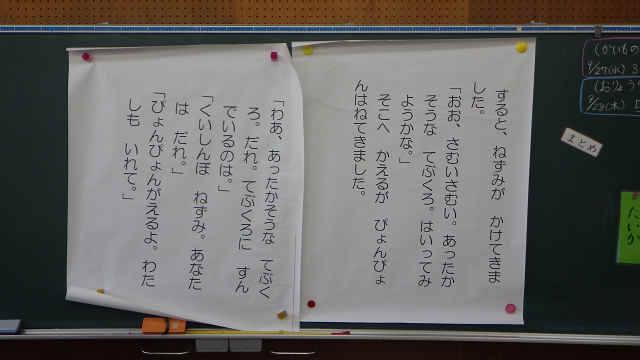 すると、ねずみが　かけてきま
した。
「おお、さむいさむい。あったか
そうな　てぶくろ。はいってみ
ようかな。」
そこへ　かえるが　ぴょんぴょ
んはねてきました。
「わあ、あったかそうな　てぶく
ろ。だれ。てぶくろに　すん
でいるのは。」
「くいしんぼ　ねずみ。あなた
は　だれ。」
「ぴょんぴょんがえるよ。わた
しも　いれて。」
まとめ